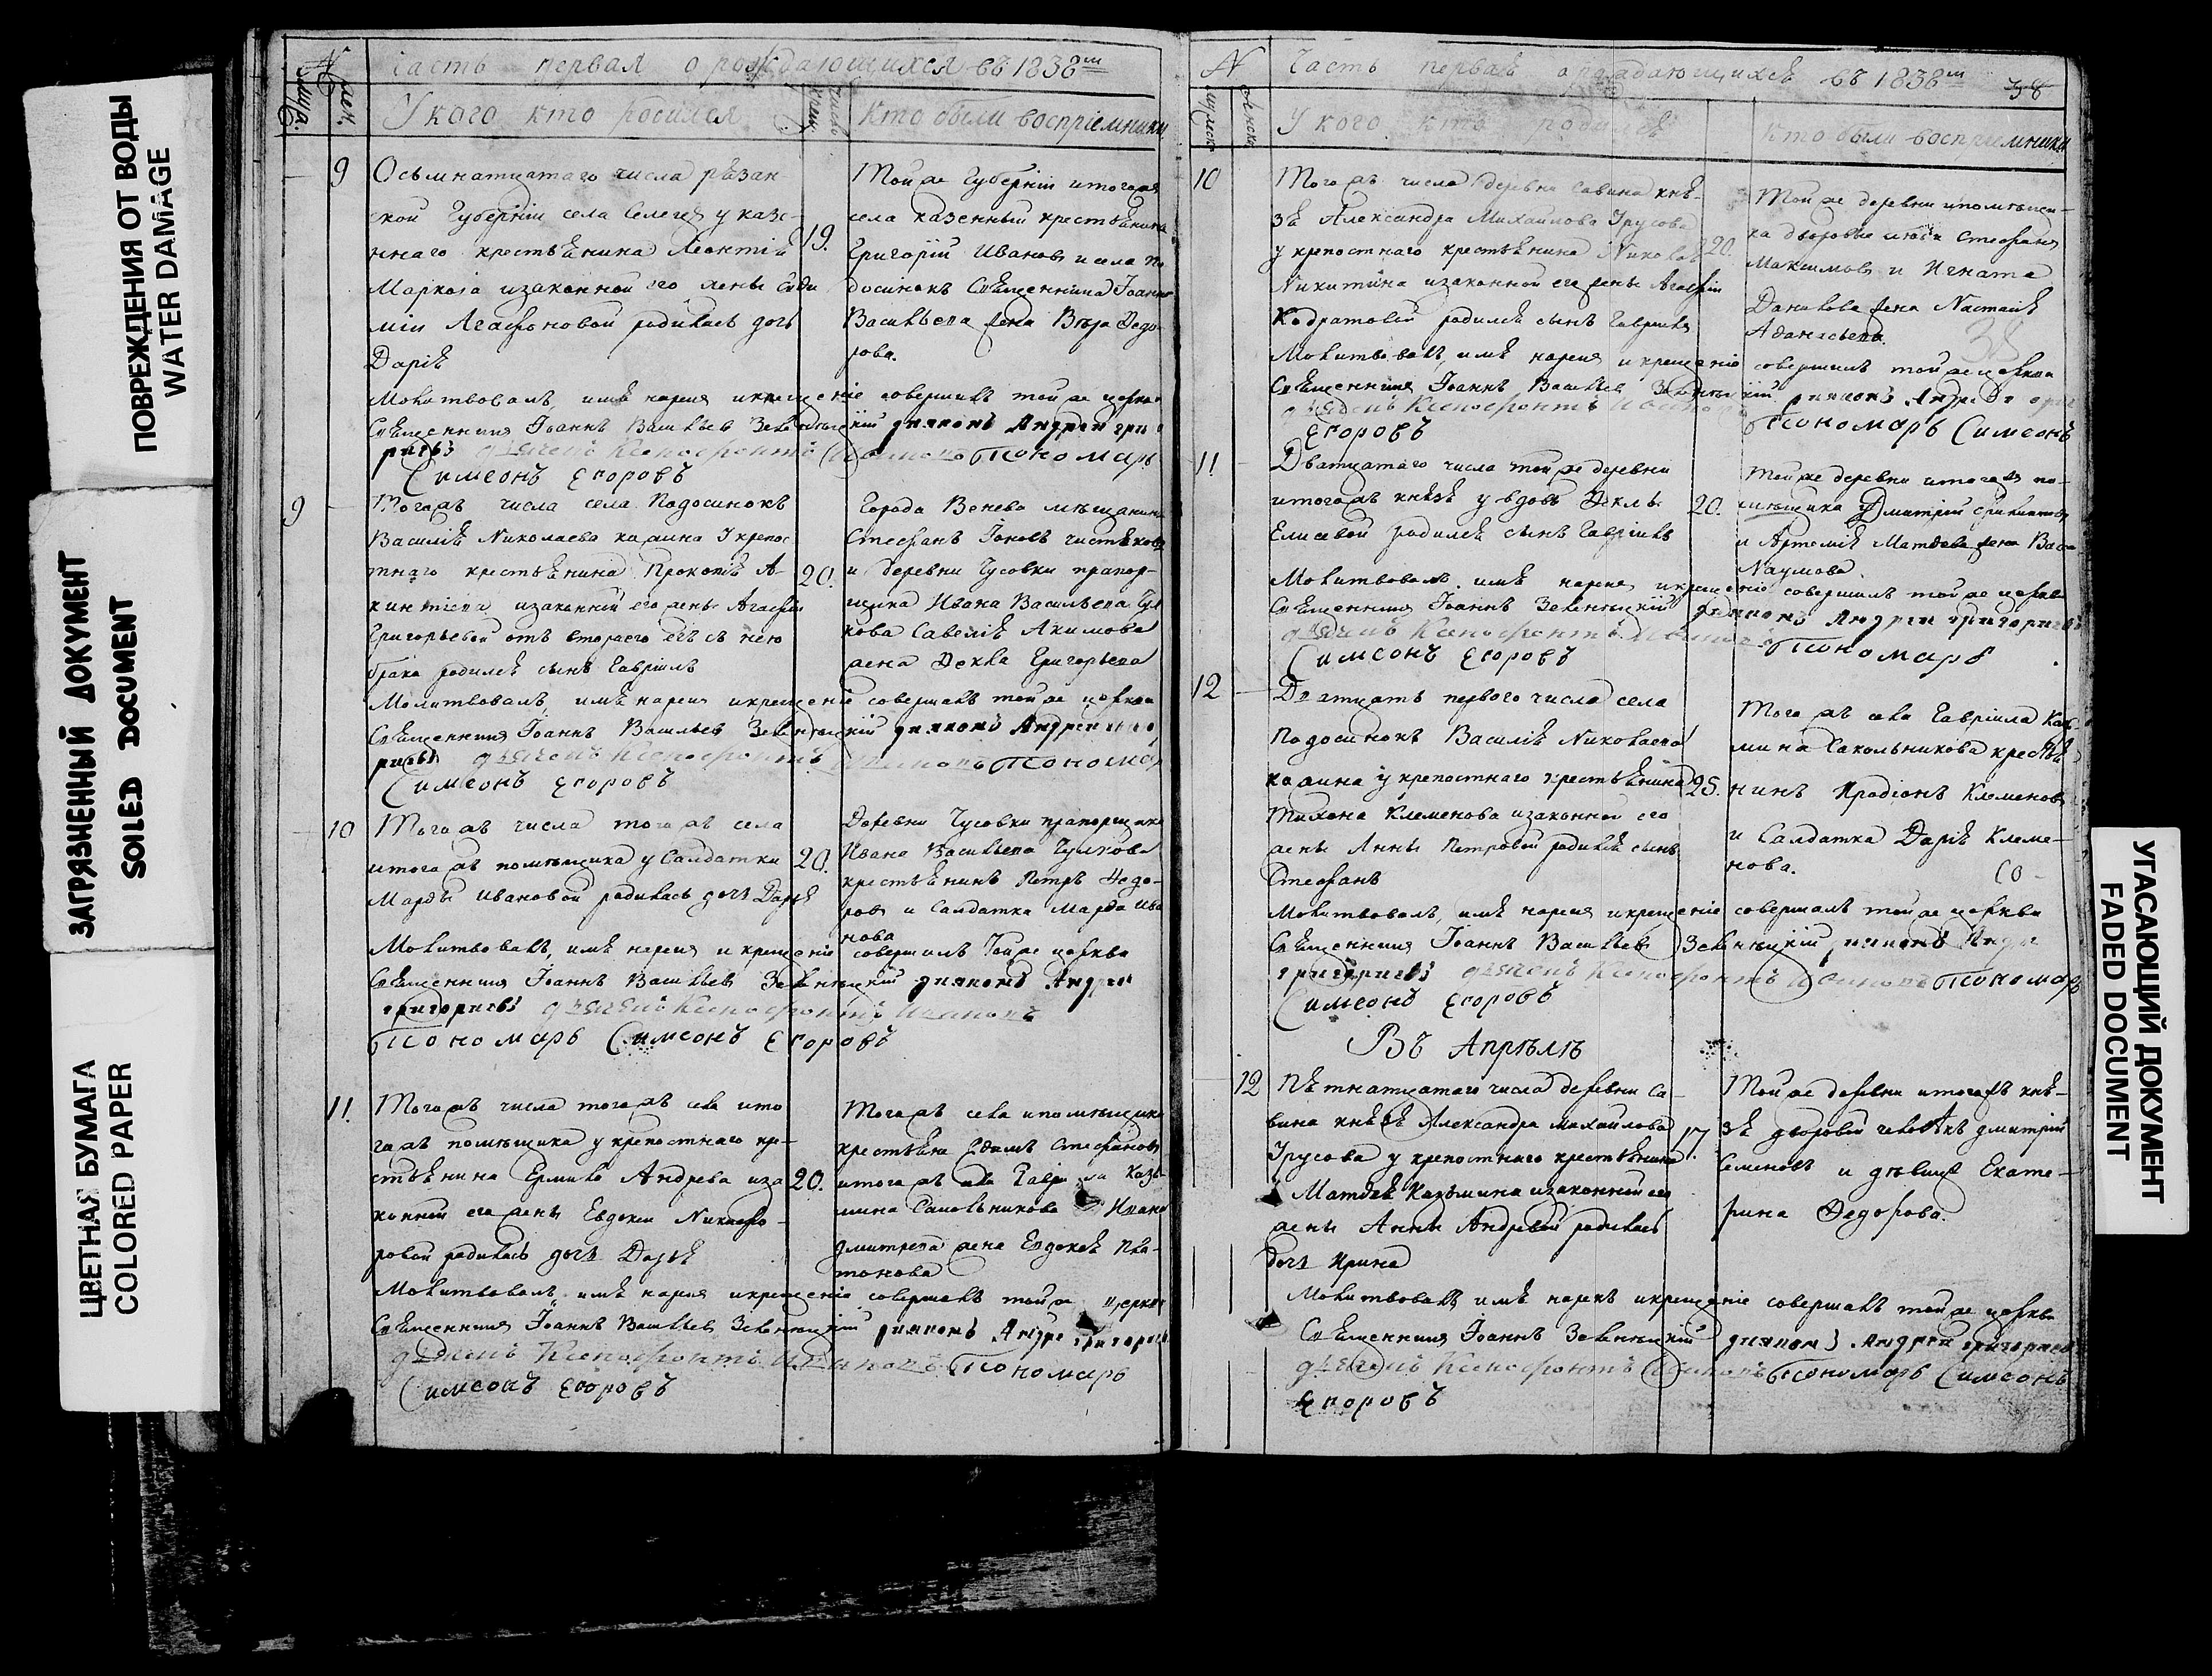 ПОВРЕЖДЕНИЯ ОТ ВОДЫ
WATER DAMAGE
ЗАГРЯЗНЕННЫЙ ДОКУМЕНТ
SOILED DOCUMENT
ЦВЕТНАЯ БУМАГА
COLORED PAPER
Часть первая о рождающихся въ 1838 м
У кого кто родился
Кто были восприемники
9
Осьмнатцатаго числа рязан-
ской Губерніи села Селегея у казе-
ннаго крестьянина Леонтій
19.
изаконной его жены
Агафоновой родилась дочь
Дарія
Той же Губерніи и того же
села казенный крестьянинъ
Григорій Ивановъ и села По
досинокъ Священника Іоанна
Васильева жена Вѣра Ѳедо-
рова.
Молитвовалъ, имя нарекъ и крещеніе совершилъ той же церкви
Священникъ Іоаннъ Васильевъ Зеленецкій дияконъ Андрей Григо
рьевъ дьячекъ Ксенофонтъ Ивановъ Пономарь
Симеонъ Егоровъ
9
Тогожъ числа села Подосинокъ
Василія Николаева Кашина у крепос
тнаго крестьянина Прокопія А-
20.
изаконной его жены Агафіи
Григорьевой отъ втораго ея съ нею
брака родился сынъ Гавріилъ
Города Венева мѣщанинъ
Стефанъ Іоновъ
и деревни Чусовки прапор-
щика Ивана Васильева Чул
кова Савелія Акимова
жена Ѳекла Григорьева
Молитвовалъ, имя нарекъ и крещеніе совершилъ той же церкви
Священникъ Іоаннъ Васильевъ Зеленецкій дияконъ Андрей Григо
рьевъ дьячекъ Ксенофонтъ Ивановъ Пономарь
Симеонъ Егоровъ
10
Тогожъ числа тогожъ села
итогожъ помѣщика у Салдатки
20.
Марфы Ивановой родилась дочь Дарья
Деревни Чусовки прапорщика
Ивана Васильева Чулкова
крестьянинъ Петръ Ѳедо-
ровъ и Салдатка Марфа Ива
нова
Молитвовалъ, имя нарекъ и крещеніе совершилъ Той же церкви
Священникъ Іоаннъ Васильевъ Зеленецкій дияконъ Андрей
Григорьевъ дьячекъ Ксенофонтъ Ивановъ
Пономарь Симеонъ Егоровъ
11
Тогожъ числа тогожъ села ито
гожъ помѣщика у крепостнаго кре-
стьянина Ермила Андреева иза
20.
конной его жены Евдокеи Никифо-
ровой родилась дочь Дарья
Тогожъ села ипомѣщика
Стефановъ
итогожъ села Гавріила Козь
мина Сакольникова Ивана
Дмитрева жена Евдокея Пла-
тонова
Молитвовалъ, имя нарекъ и крещеніе совершилъ той же церкви
Священникъ Іоаннъ Васильевъ Зеленецкій дияконъ Андрей Григорьевъ
дьячекъ Ксенофонтъ Ивановъ Пономарь
Симеонъ Егоровъ
Часть первая о рождающихся въ 1838 м
38
У кого кто родился
Кто были восприемники
10
Тогожъ числа деревни Савина кня-
зя Александра Михайлова Урусова
у крепостнаго крестьянина Николая
20.
Никитина изаконной его жены Агафіи
Кодратовой родился сынъ Гавріилъ
Той же деревни ипомѣщи-
ка дворовые люди Стефанъ
Максимовъ и Игната
Данилова жена Настасія
Аѳанасьева.
38
Молитвовалъ, имя нарекъ и крещеніе совершилъ той же церкви
Священникъ Іоаннъ Васильевъ Зеленецкій дияконъ Андрей Григ
дьячекъ Ксенофонтъ Ивановъ Пономарь Симеонъ
Егоровъ
11
Дватцатаго числа той же деревни
итогожъ князя у вдовы Ѳеклы
20.
Елисевой родился сынъ Гавріилъ
Той же деревни итогожъ по-
мѣщика Дмитрій Филиповъ
и Артемія Матвѣева жена Васа
Наумова
Молитвовалъ, имя нарекъ и крещеніе совершилъ той же церкви
Священникъ Іоаннъ Зеленецкій дияконъ Андрей Григорьевъ
дьячекъ Ксенофонтъ Ивановъ Пономарь
Симеонъ Егоровъ
12
Дватцать первого числа села
Подосинокъ Василія Николаева
Кашина у крепостнаго крестьянина
25.
Тихона Клеменова изаконной его
жены Анны Петровой родился сынъ
Стефанъ
Тогожъ села Гавріила Козь
мина Сакольникова крестья
нинъ Иродіонъ Клеменовъ
и Салдатка Дарія Клеме-
нова.
Молитвовалъ, имя нарекъ и крещеніе совершилъ той же церкви
Священникъ Іоаннъ Васильевъ Зеленецкій дияконъ Андрей
Григорьевъ дьячекъ Ксенофонтъ Ивановъ Пономарь
Симеонъ Егоровъ
Въ Апрѣлѣ
12
Пятнатцатаго числа деревни Са-
вина князя Александра Михайлова
Урусова у крепостнаго крестьянина
17.
Матвѣя Казьмина изаконной его
жены Анны Андревой родилась
дочь Ирина
Той же деревни итогожъ кня-
зя дворовый человѣкъ Дмитрій
Семеновъ и дѣвица Екате-
рина Ѳедорова.
Молитвовалъ имя нарекъ и крещеніе совершилъ той же церкви
Священникъ Іоаннъ Зеленецкій дияконъ Андрей Григорьевъ
дьячекъ Ксенофонтъ Ивановъ Пономарь Симеонъ
Егоровъ
УГАСАЮЩИЙ ДОКУМЕНТ
FADED DOCUMENT